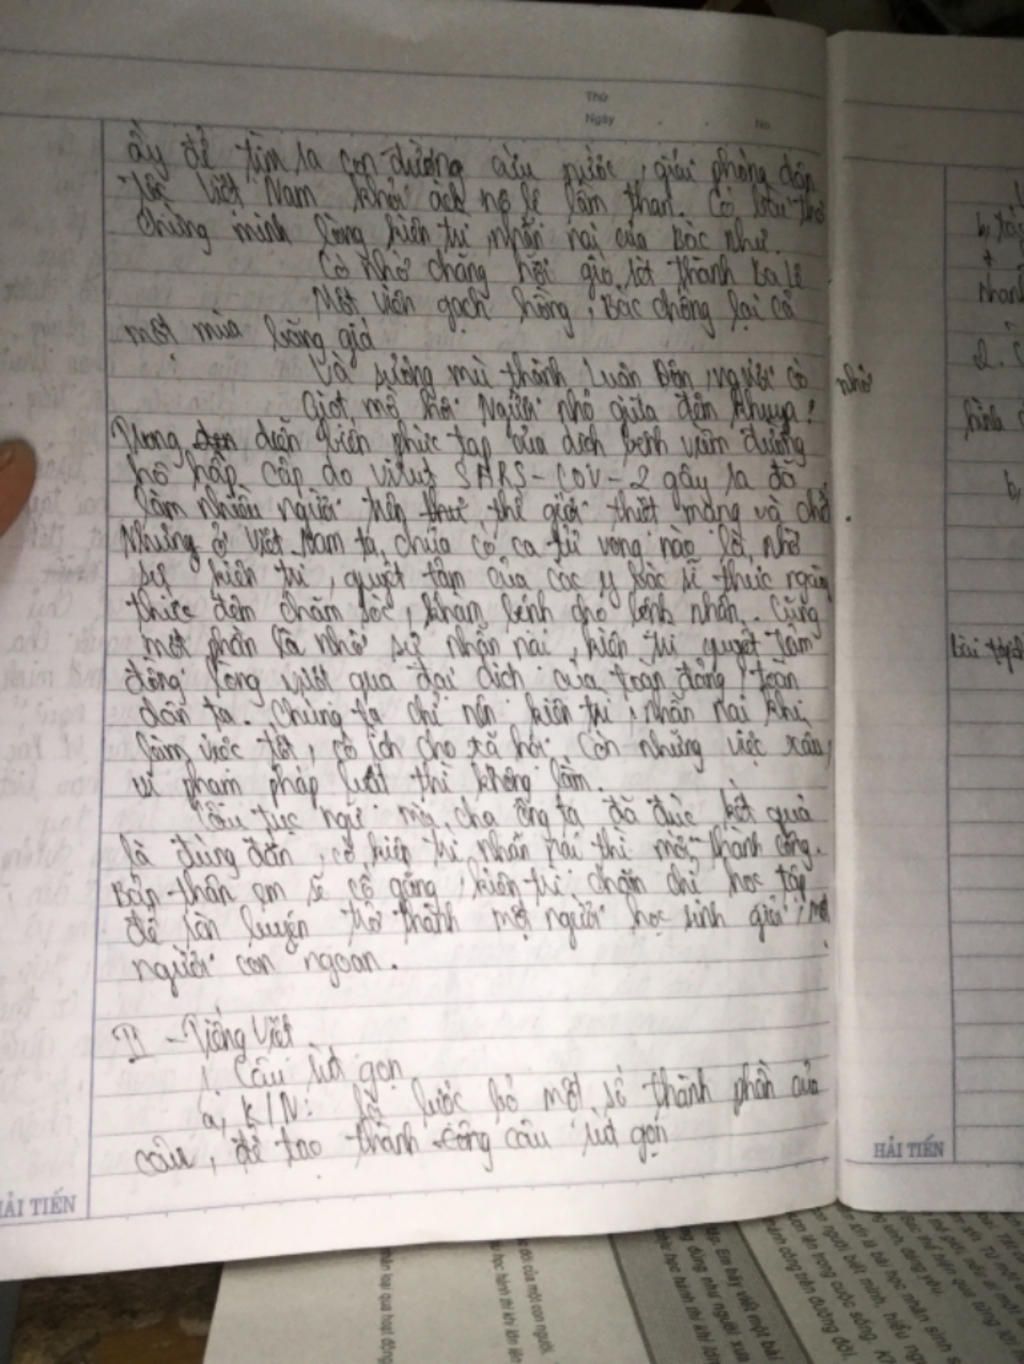 Thứ
Ngày
No
ấy để tìm ra con đường cứu nước, giải phóng dân
tộc Việt Nam khỏi ách nô lệ lầm than. Có bài thơ
chứng minh lòng kiên trì nhẫn nại của Bác như.
Có nhớ chăng hỡi gió rét thành Ba Lê
Một viên gạch hồng, Bác chống lại cả
một mùa băng giá
Và sương mù thành Luân Đôn, người có nhớ
Giọt mồ hôi Người nhỏ giữa đêm khuya!
Trong diễn biến phức tạp của dịch bệnh viêm đường
hô hấp cấp do virut SARS-COV-2 gây ra đã
làm nhiều người trên thế giới thiệt mạng và
Nhưng ở Việt Nam ta, chưa có ca tử vong nào là nhờ
sự kiên trì, quyết tâm của các y bác sĩ thức ngày
thức đêm chăm sóc, khám bệnh cho bệnh nhân. Cũng
một phần là nhờ sự nhẫn nại, kiên trì quyết tâm
đồng lòng vượt qua đại dịch của toàn đảng, toàn
dân ta. Chúng ta chỉ nên kiên trì, nhẫn nại khi
làm việc tốt, có ích cho xã hội. Còn những việc xấu,
vi phạm pháp luật thì không làm.
Câu tục ngữ mà cha ông ta đã đúc kết quả
là đúng đắn, có kiên trì nhẫn nại thì mới thành công.
Bản thân em sẽ cố gắng, kiên trì chăm chỉ học tập
để rèn luyện trở thành một người học sinh giỏi, một
người con ngoan.
II - Tiếng Việt
1. Câu rút gọn
a, K/N: là lược bỏ một số thành phần của
câu, để tạo thành công câu rút gọn
HẢI TIẾN
HẢI TIẾN
b,
2.
b,
bài tập